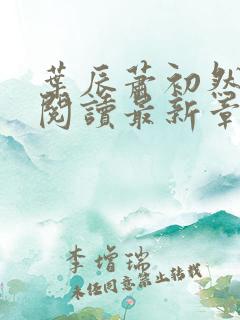 葉辰蕭初然
閱讀最新章
李增瑞
未经同意禁止转载